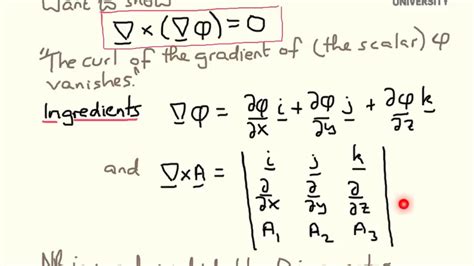 Want to show
UNIVERSITY
∇×(∇φ)=0
"The curl of the gradient of (the scalar) φ
vanishes."
Ingredients ∇φ = ∂φ/∂x i + ∂φ/∂y j + ∂φ/∂z k
and ∇×A = | i j k
∂/∂x ∂/∂y ∂/∂z
A₁ A₂ A₃ |